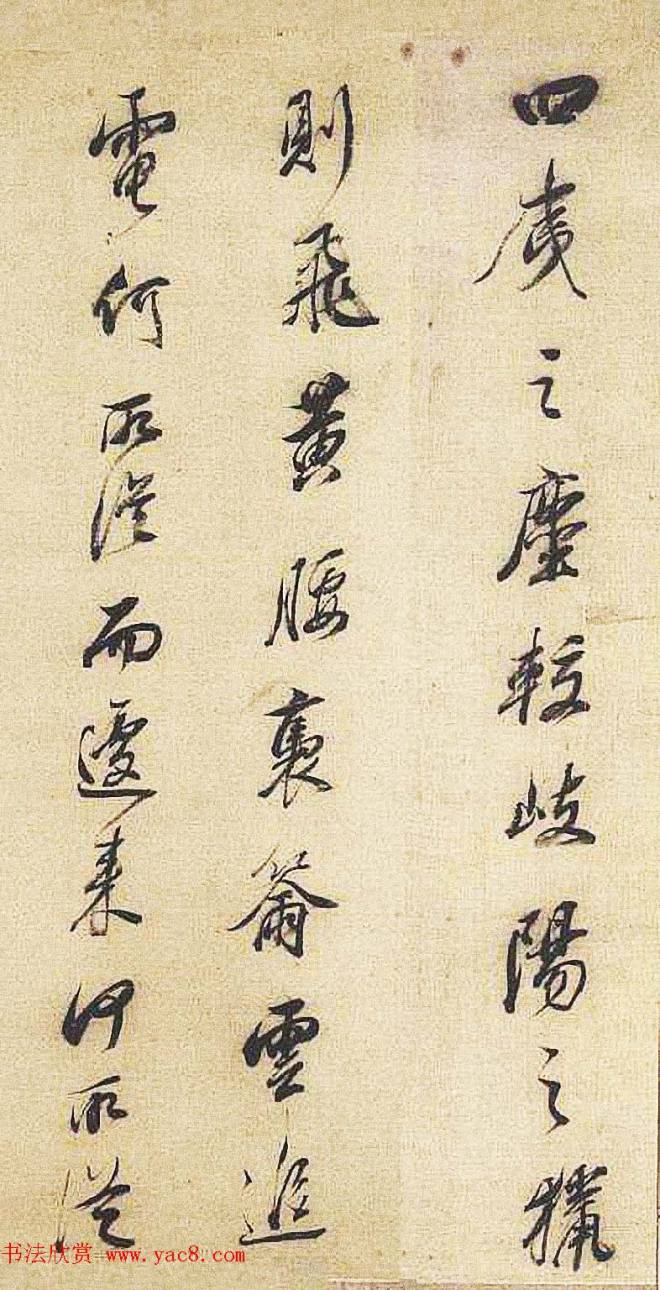 四夷之塵較岐陽之獵
則飛黃腰裹籋雲追
電何所從而遽来何所從
书法欣赏 www.yac8.com